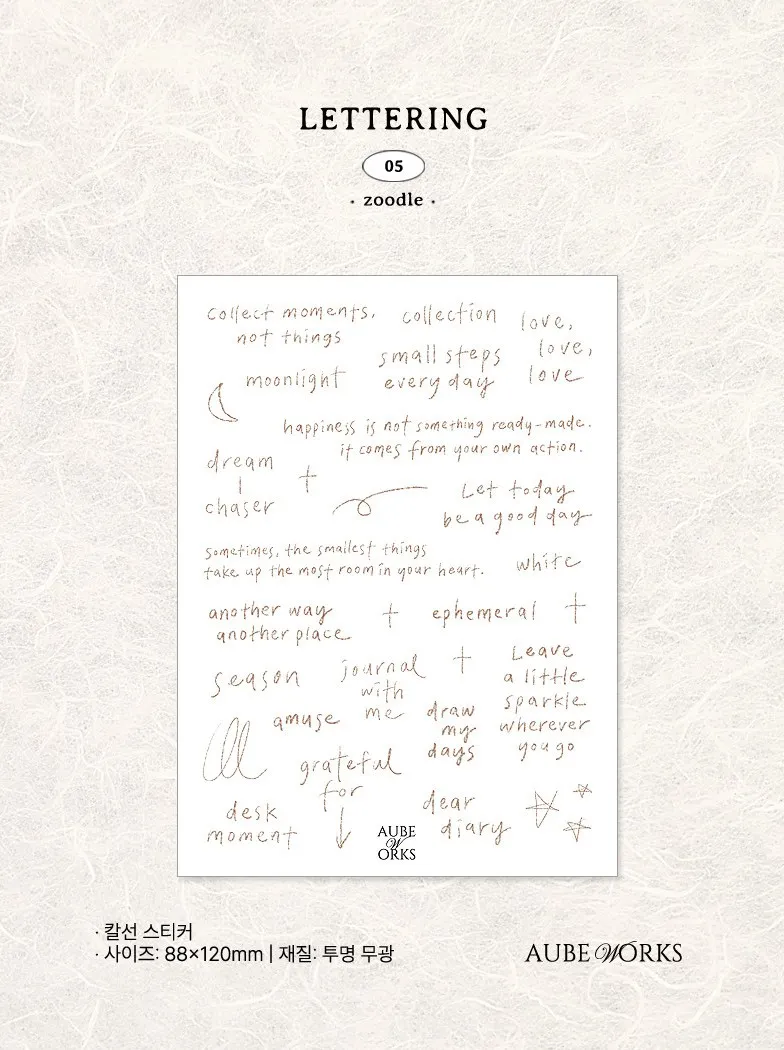 LETTERING
05
· zoodle ·
collect moments,
not things
collection
love,
love,
love
small steps
every day
moonlight
happiness is not something ready-made.
it comes from your own action.
dream
chaser
Let today
be a good day
sometimes, the smallest things
take up the most room in your heart.
white
another way
another place
ephemeral
season
journal
with
me
Leave
a little
sparkle
wherever
you go
amuse
draw
my
days
grateful
for
desk
moment
dear
diary
AUBE
W
ORKS
· 칼선 스티커
· 사이즈: 88×120mm | 재질: 투명 무광
AUBE WORKS